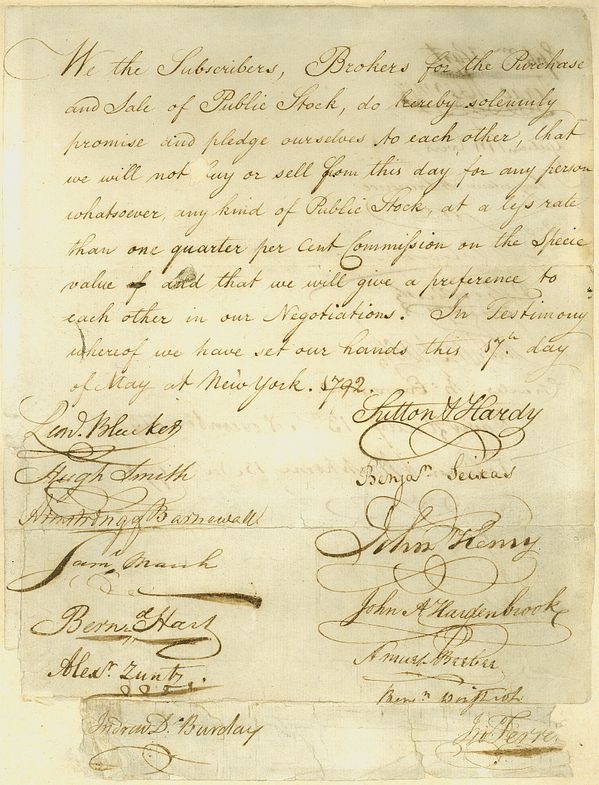 We the Subscribers, Brokers for the Purchase
and Sale of Public Stock, do hereby solemnly
promise and pledge ourselves to each other, that
we will not buy or sell from this day for any person
whatsoever, any kind of Public Stock, at a less rate
than one quarter per Cent Commission on the Specie
value of and that we will give a preference to
each other in our Negotiations. In Testimony
whereof we have set our hands this 17th. day
of May at New York. 1792.
Leond. Bleecker
Hugh Smith
Armstrong & Barnewall
Saml. March
Bernd. Hart
Alexr. Zuntz.
Andrew D. Barclay
Sutton & Hardy
Benjan. Seixas
John Henry
John A Hardenbrook
Amos Beebee
Jno. Ferre